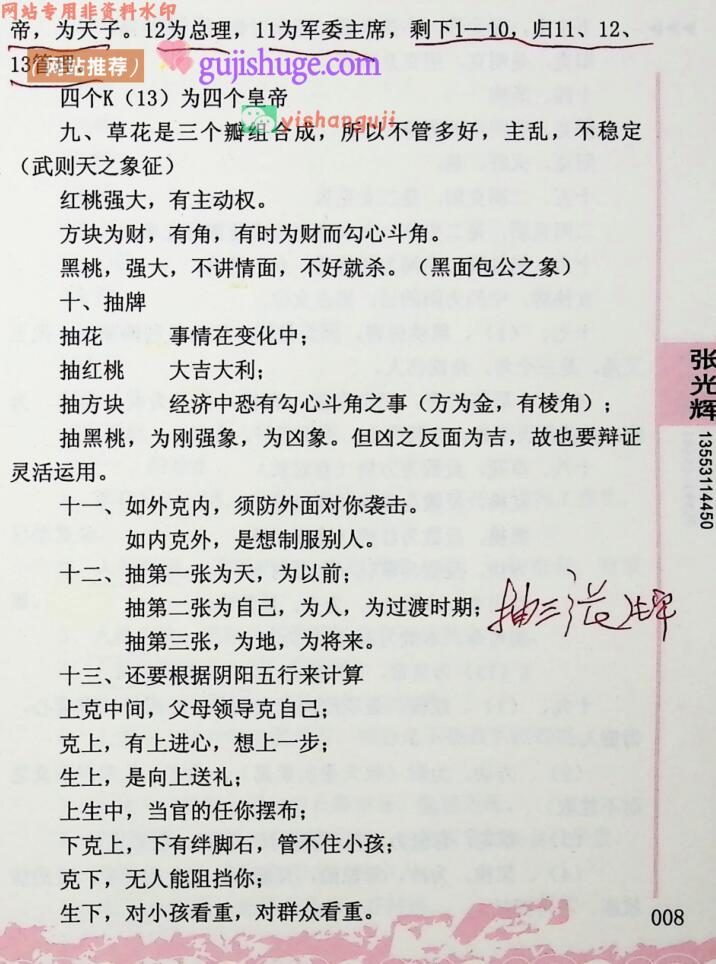 网站专用非资料水印
帝，为天子。12为总理，11为军委主席，剩下1—10，归11、12、
13管理。
网站推荐）
gujishuge.com
四个K（13）为四个皇帝
yishangguji
九、草花是三个瓣组合成，所以不管多好，主乱，不稳定
（武则天之象征）
红桃强大，有主动权。
方块为财，有角，有时为财而勾心斗角。
黑桃，强大，不讲情面，不好就杀。（黑面包公之象）
十、抽牌
抽花 事情在变化中；
抽红桃 大吉大利；
抽方块 经济中恐有勾心斗角之事（方为金，有棱角）；
抽黑桃，为刚强象，为凶象。但凶之反面为吉，故也要辩证
灵活运用。
十一、如外克内，须防外面对你袭击。
如内克外，是想制服别人。
十二、抽第一张为天，为以前；
抽第二张为自己，为人，为过渡时期；
抽第三张，为地，为将来。
抽三 牌
十三、还要根据阴阳五行来计算
上克中间，父母领导克自己；
克上，有上进心，想上一步；
生上，是向上送礼；
上生中，当官的任你摆布；
下克上，下有绊脚石，管不住小孩；
克下，无人能阻挡你；
生下，对小孩看重，对群众看重。
张光辉
13553114450
008